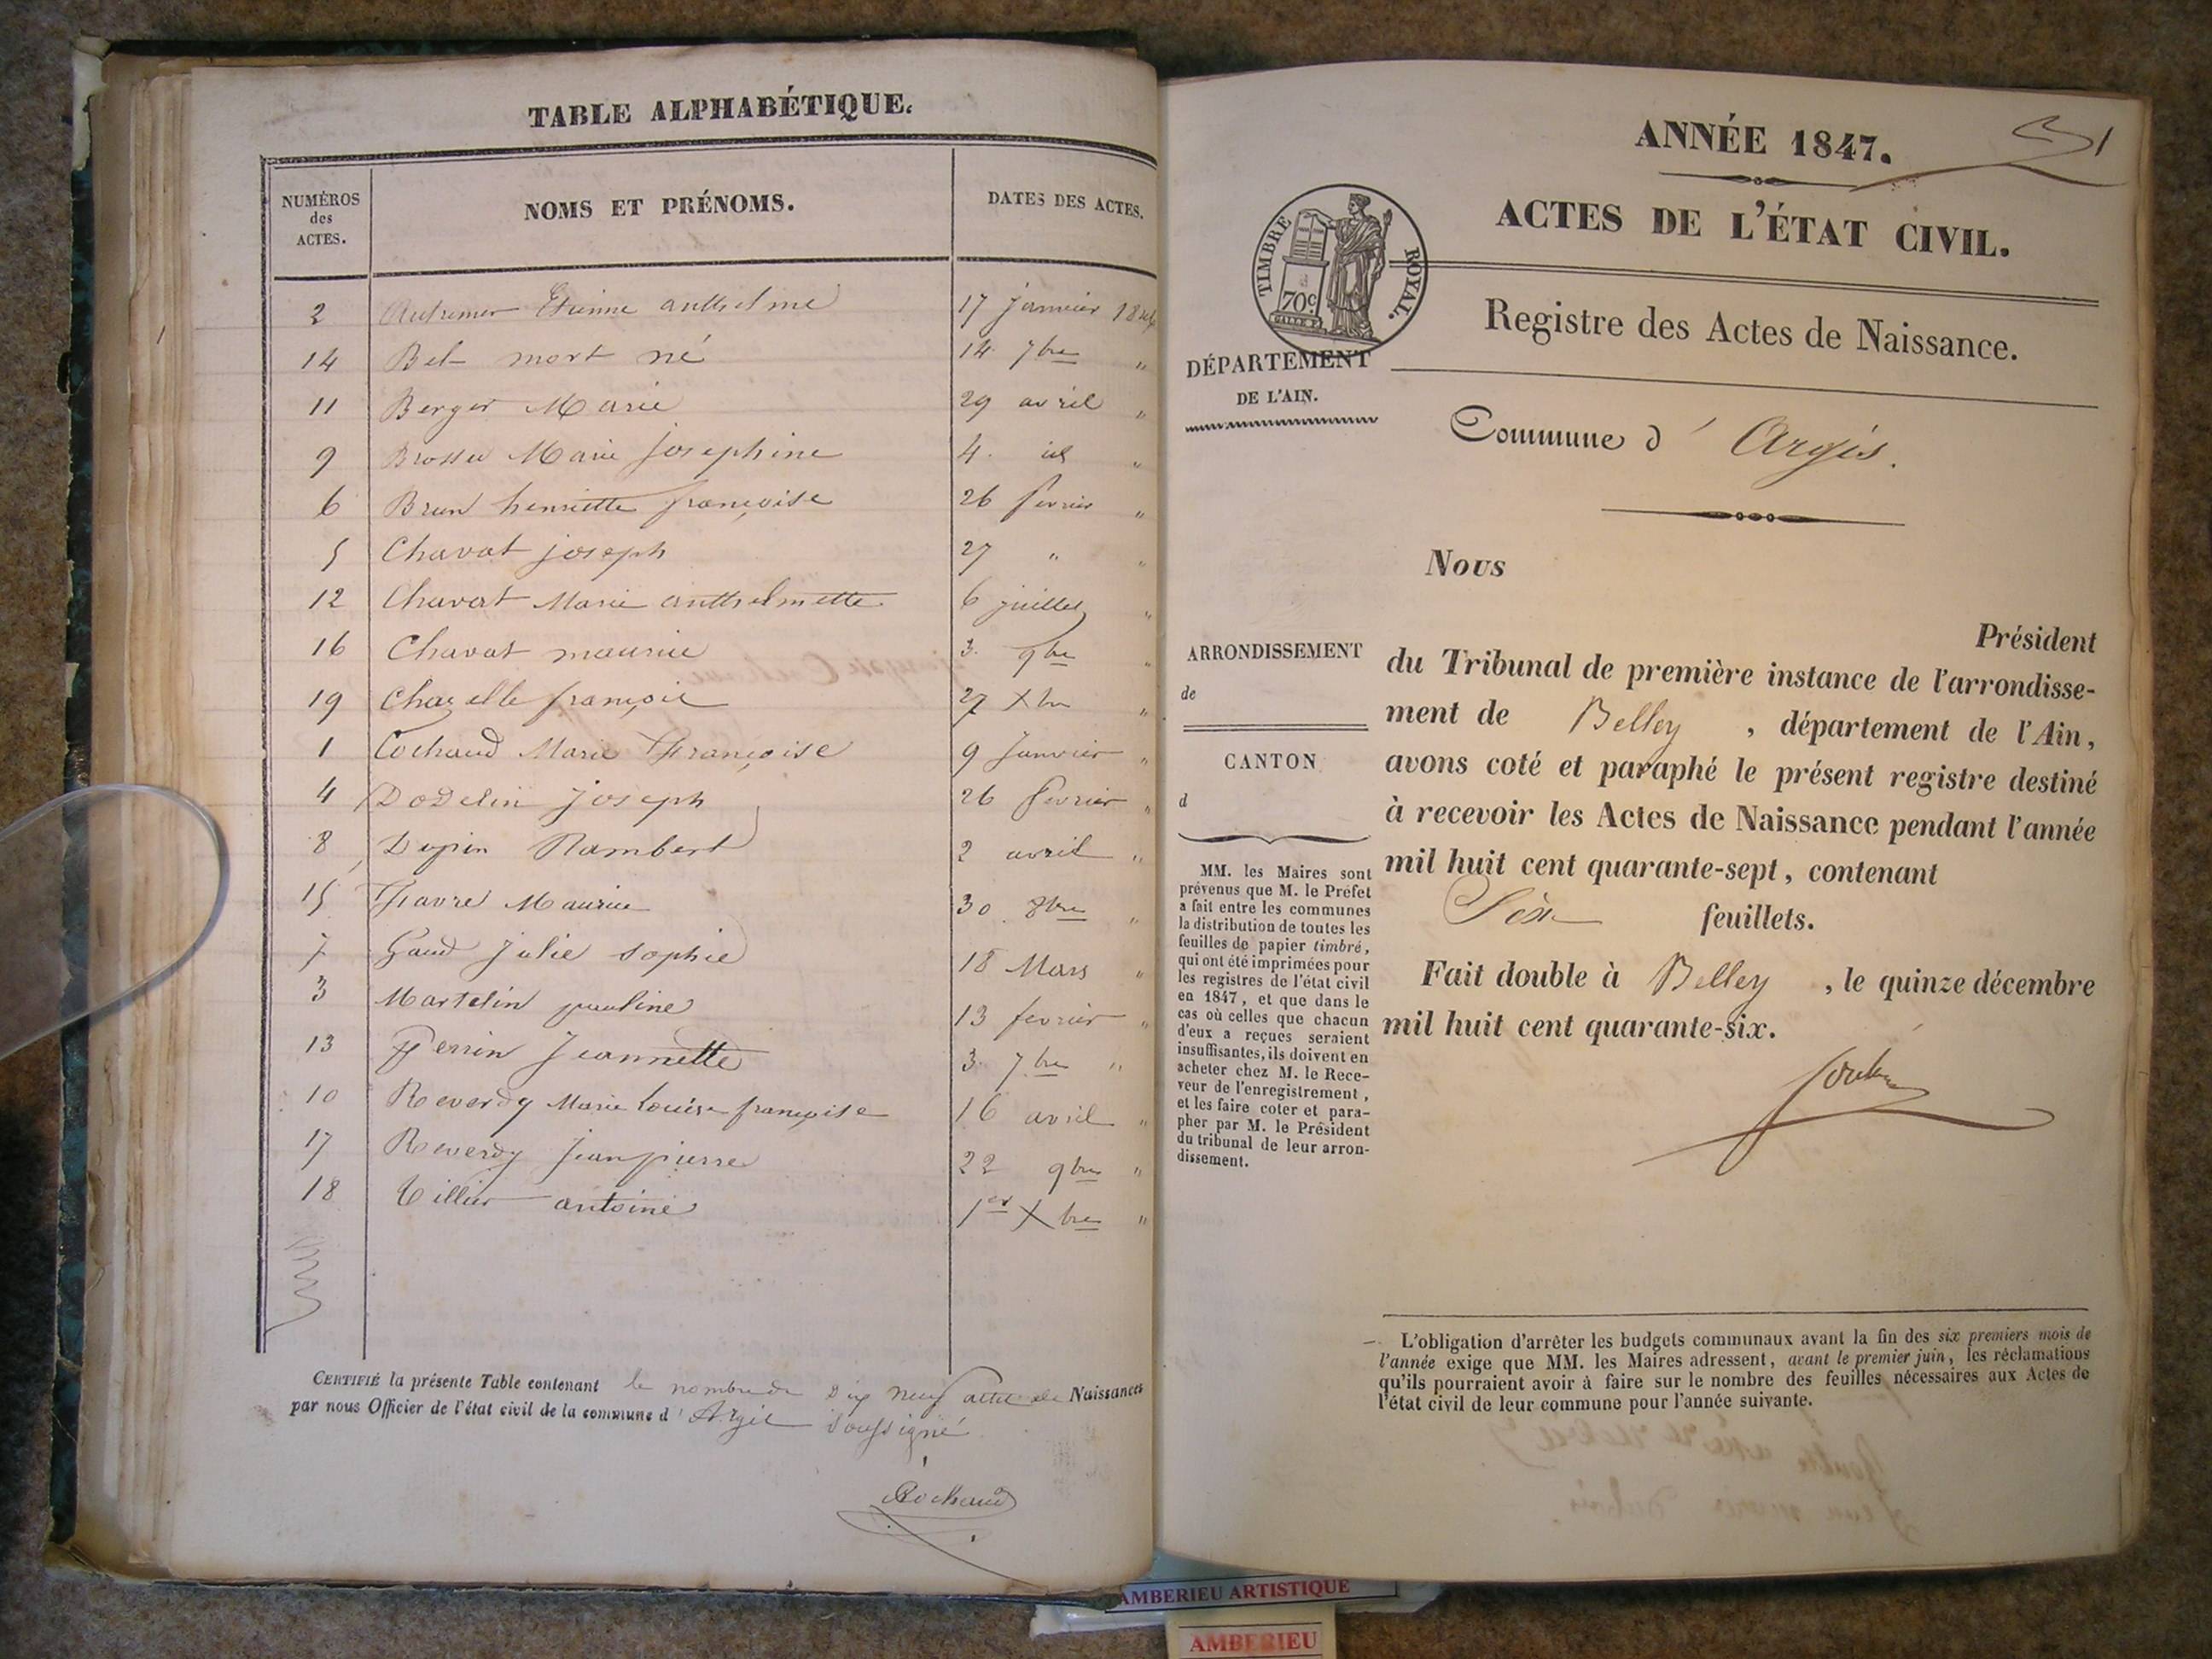 TABLE ALPHABÉTIQUE.
NUMÉROS
des
ACTES.
NOMS ET PRÉNOMS.
DATES DES ACTES.
2 Etienne anthelme 17 janvier
14 Bel mort né 14 7bre "
11 Berger Marie 29 avril "
9 Marie josephine 4. id "
6 Brun henriette françoise 26 fevrier "
5 Chavat joseph 27 " "
12 Chavat Marie anthelmette 6 juillet "
16 Chavat maurice 3. 9bre "
19 Chazelle françois 27 Xbre "
1 Cochaud Marie Françoise 9 Janvier "
4 Dodelin joseph 26 fevrier "
8 Dupin Rambert 2 avril "
15 Favre Maurice 30 8bre "
7 Gaud Julie sophie 18 Mars "
3 Martelin pauline 13 fevrier "
13 Perrin Jeannette 3. 7bre "
10 Reverdy Marie Louise françoise 16 avril "
17 Reverdy jean pierre 22 9bre "
18 Tillier antoine 1er Xbre "
CERTIFIÉ la présente Table contenant le nombre de Dix neuf actes de Naissances
par nous Officier de l'état civil de la commune d'Argis soussigné
Cochaud
ANNÉE 1847.
1
ACTES DE L'ÉTAT CIVIL.
TIMBRE ROYAL.
70c.
Registre des Actes de Naissance.
DÉPARTEMENT
DE L'AIN.
Commune d'Argis.
Nous
Président
du Tribunal de première instance de l'arrondisse-
ment de Belley, département de l'Ain,
avons coté et paraphé le présent registre destiné
à recevoir les Actes de Naissance pendant l'année
mil huit cent quarante-sept, contenant
feuillets.
Fait double à Belley, le quinze décembre
mil huit cent quarante-six.
ARRONDISSEMENT
de
CANTON
d
MM. les Maires sont
prévenus que M. le Préfet
a fait entre les communes
la distribution de toutes les
feuilles de papier timbré,
qui ont été imprimées pour
les registres de l'état civil
en 1847, et que dans le
cas où celles que chacun
d'eux a reçues seraient
insuffisantes, ils doivent en
acheter chez M. le Rece-
veur de l'enregistrement,
et les faire coter et para-
pher par M. le Président
du tribunal de leur arron-
dissement.
L'obligation d'arrêter les budgets communaux avant la fin des six premiers mois de
l'année exige que MM. les Maires adressent, avant le premier juin, les réclamations
qu'ils pourraient avoir à faire sur le nombre des feuilles nécessaires aux Actes de
l'état civil de leur commune pour l'année suivante.
AMBERIEU ARTISTIQUE
AMBERIEU